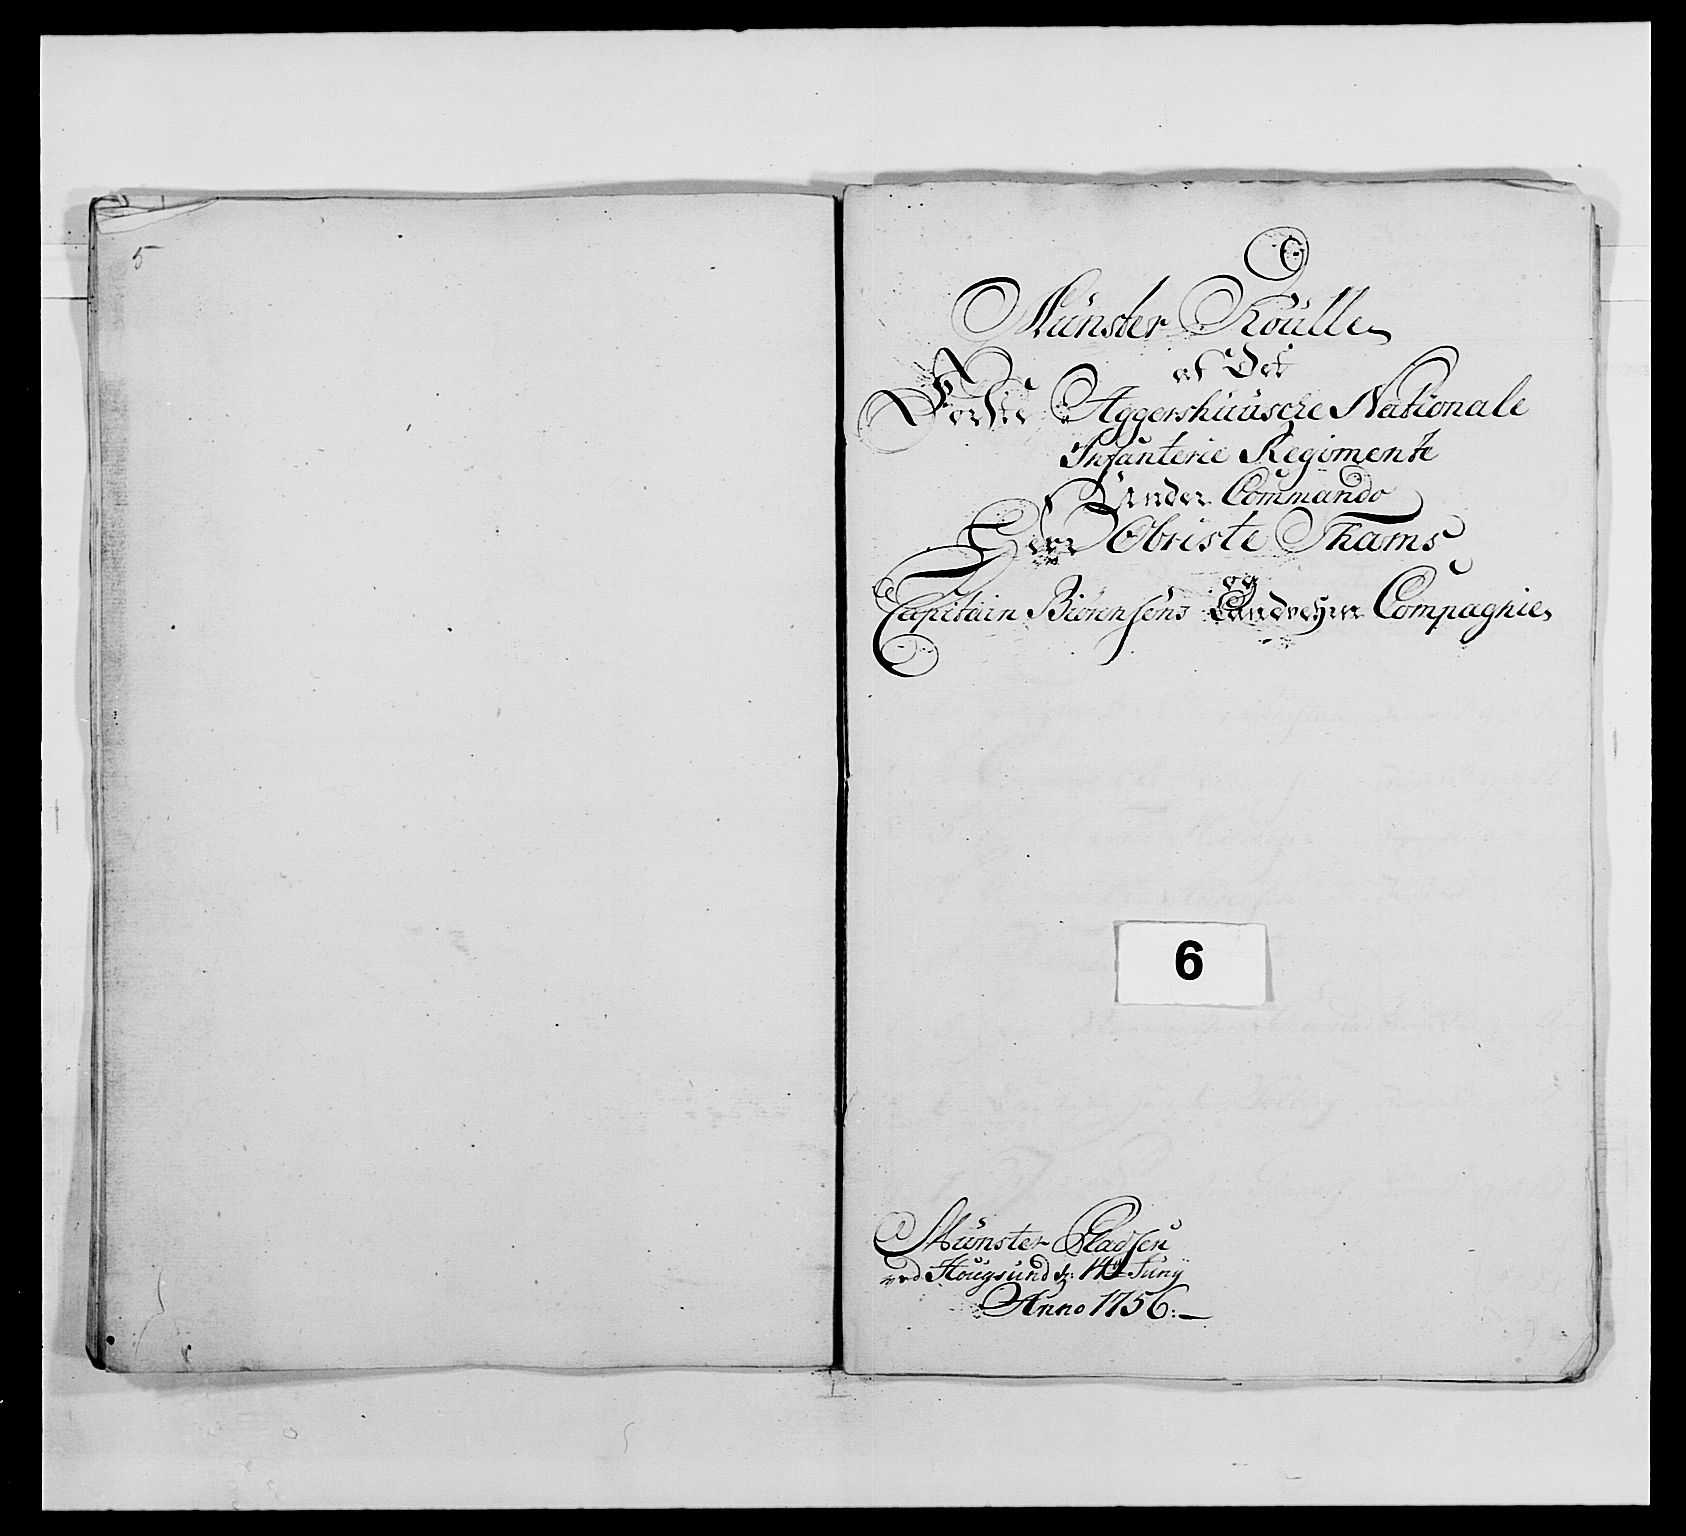 5
Münster Roülle
af Det
Første Aggershüüsche Nationale
Infanterie Regimente
Under Commando
Herr Obriste Thams
og
Capitain Biörensens Landvehrn Compagnie
6
Münster Pladsen
ved Hougsund d: 14de Juny
Anno 1756: